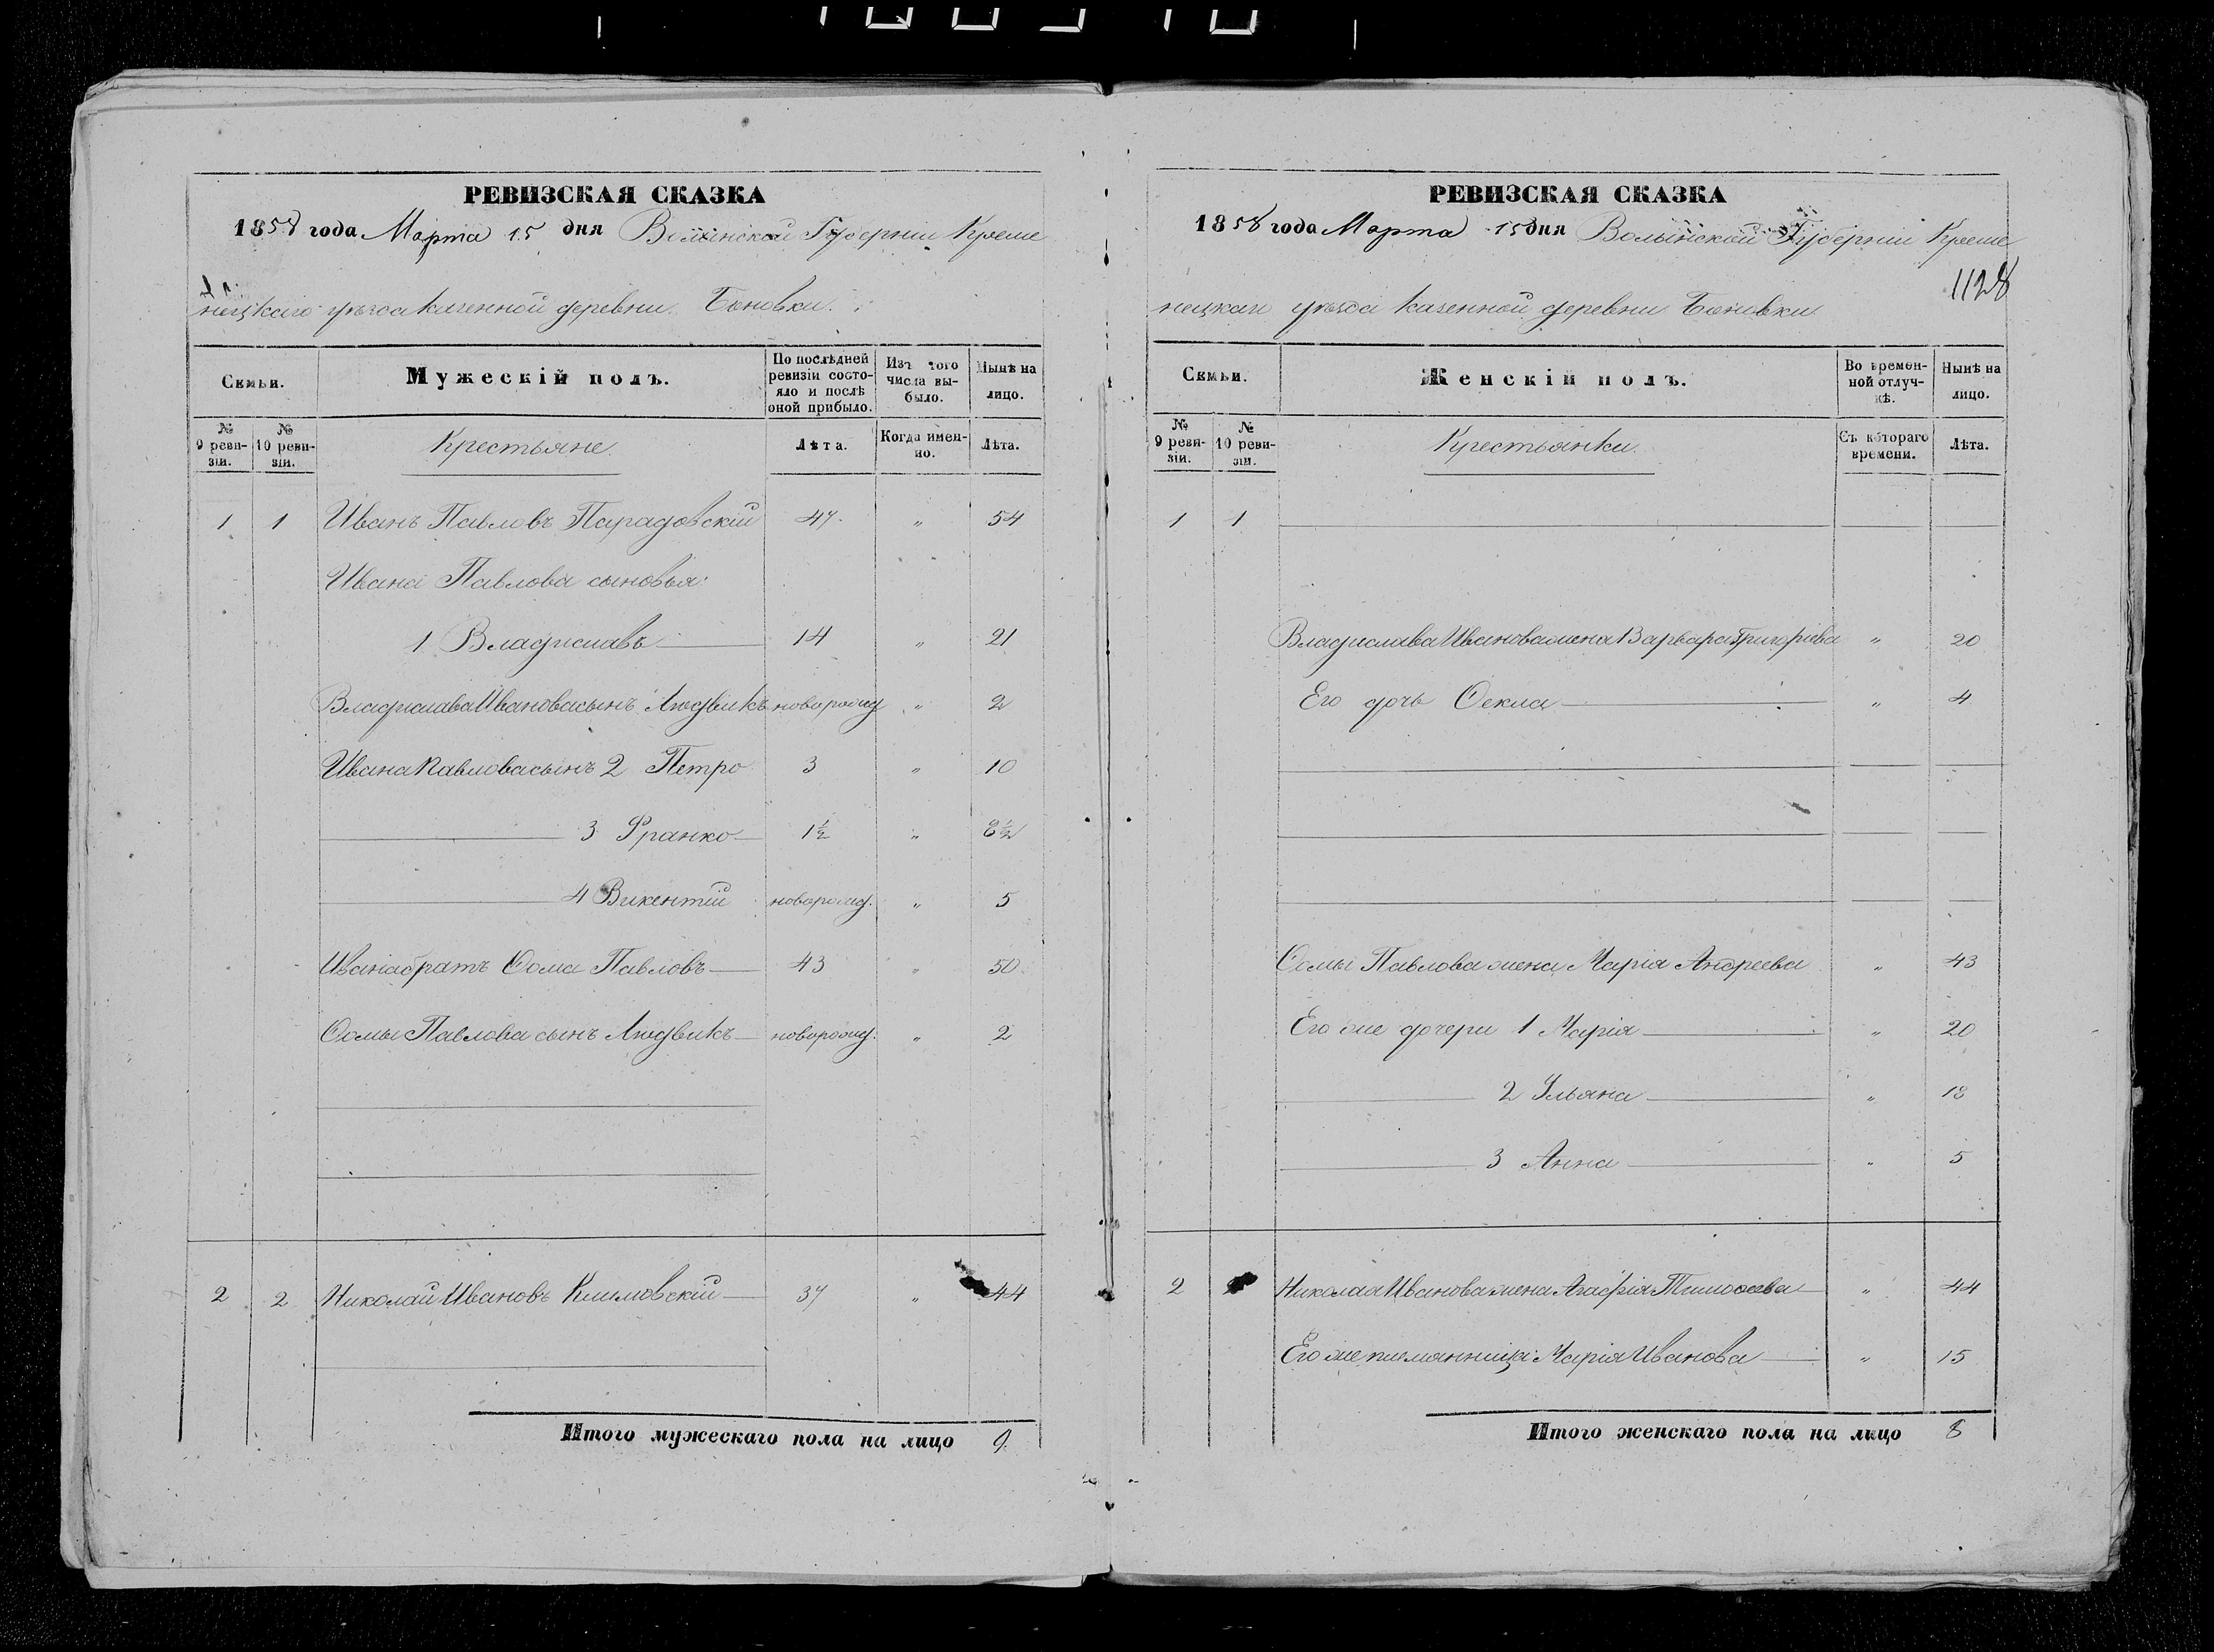 РЕВИЗСКАЯ СКАЗКА
1858 года Марта 15 дня Волынской Губерніи Креме
нецкаго уѣзда казенной деревни Боновки.
Семьи.
Мужескій полъ.
По послѣдней ревизіи состояло и послѣ оной прибыло.
Изъ того числа выбыло.
Нынѣ на лицо.
№ 9 ревизіи.
№ 10 ревизіи.
Крестьяне
Лѣта.
Когда именно.
Лѣта.
1 1 Иванъ Павловъ Парадовскій 47 „ 54
Ивана Павлова сыновья:
1 Владиславъ 14 „ 21
Владислава Иванова сынъ Людвикъ новорожд „ 2
Ивана Павлова сынъ 2 Петро 3 „ 10
3 Франко 1½ „ 8½
4 Викентій новорожд. „ 5
Ивана братъ Ѳома Павловъ 43 „ 50
Ѳомы Павлова сынъ Людвикъ новорожд. „ 2
2 2 Николай Ивановъ Климовскій 37 „ 44
Итого мужескаго пола на лицо 9.
РЕВИЗСКАЯ СКАЗКА
1858 года Марта 15 дня Волынской Губерніи Креме
1128
нецкаго уѣзда казенной деревни Боновки
Семьи.
Женскій полъ.
Во временной отлучкѣ.
Нынѣ на лицо.
№ 9 ревизіи.
№ 10 ревизіи.
Крестьянки.
Съ котораго времени.
Лѣта.
1 1
Владислава Иванова жена Варвара Григоріева „ 20
Его дочь Ѳекла „ 4
Ѳомы Павлова жена Марія Андреева „ 43
Его же дочери 1 Марія „ 20
2 Ульяна „ 18
3 Анна „ 5
2 Николая Иванова жена Агафія Тимоѳеева „ 44
Его же племянница Марія Иванова „ 15
Итого женскаго пола на лицо 8